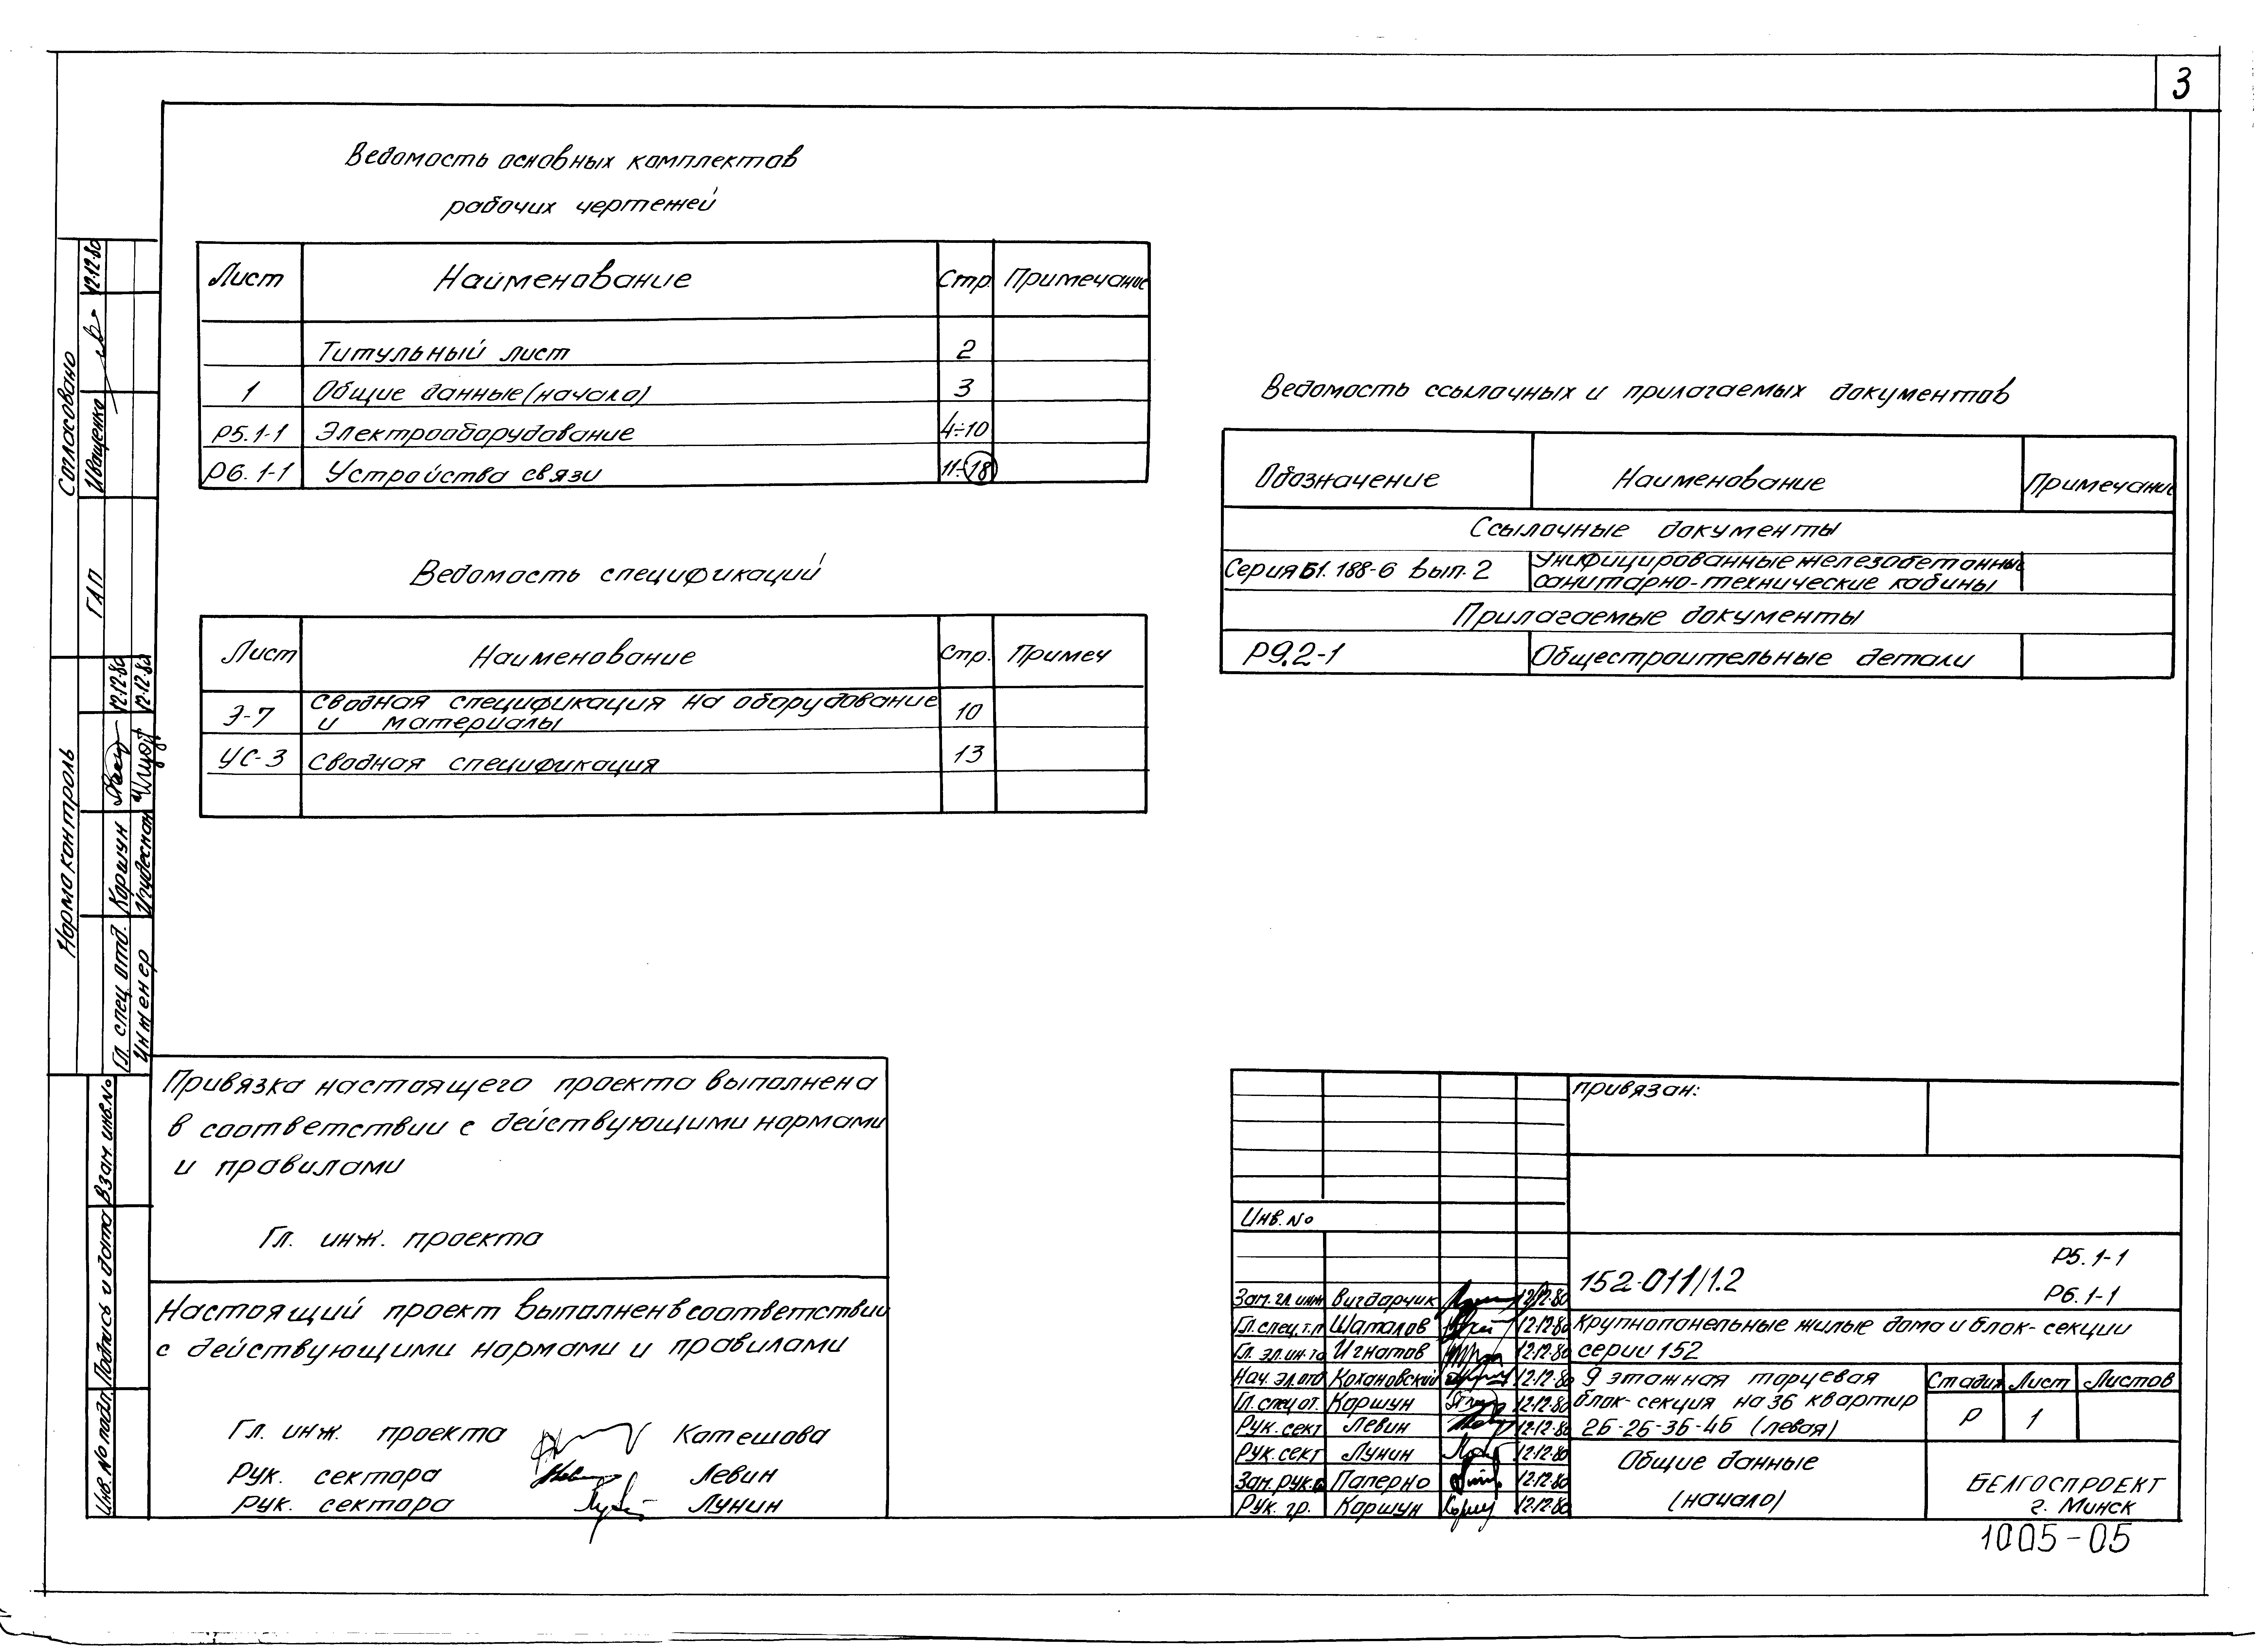 3
Ведомость основных комплектов
рабочих чертежей
Лист Наименование Стр. Примечание
Титульный лист 2
1 Общие данные (начало) 3
Р5.1-1 Электрооборудование 4÷10
Р6.1-1 Устройства связи 11÷18
Ведомость спецификаций
Лист Наименование Стр. Примеч
Э-7 Сводная спецификация на оборудование
и материалы 10
УС-3 Сводная спецификация 13
Ведомость ссылочных и прилагаемых документов
Обозначение Наименование Примечание
Ссылочные документы
Серия Б1.188-6 вып.2 Унифицированные железобетонные
санитарно-технические кабины
Прилагаемые документы
Р9.2-1 Общестроительные детали
Согласовано
ГАП Иващенко 12.12.80
Норма контроль
Гл. спец. отд. Коршун 12.12.80
Инженер 12.12.80
Взам. инв. №
Подпись и дата
Инв. № подл.
Привязка настоящего проекта выполнена
в соответствии с действующими нормами
и правилами
Гл. инж. проекта
Настоящий проект выполнен в соответствии
с действующими нормами и правилами
Гл. инж. проекта Катешова
Рук. сектора Левин
Рук. сектора Лунин
привязан:
Инв. №
152-011/1.2 Р5.1-1
Р6.1-1
Зам. гл. инж Вигдарчик 12.12.80
Гл. спец. т.п Шаталов 12.12.80
Гл. эл. ин-та Игнатов 12.12.80
Нач. эл. отд Кохановский 12.12.80
Гл. спец от. Коршун 12.12.80
Рук. сект Левин 12.12.80
Рук. сект Лунин 12.12.80
Зам. рук. Паперно 12.12.80
Рук. гр. Коршун 12.12.80
Крупнопанельные жилые дома и блок-секции
серии 152
9 этажная торцевая
блок-секция на 36 квартир
2Б-2Б-3Б-4Б (левая)
Стадия Лист Листов
Р 1
Общие данные
(начало)
БЕЛГОСПРОЕКТ
г. Минск
1005-05